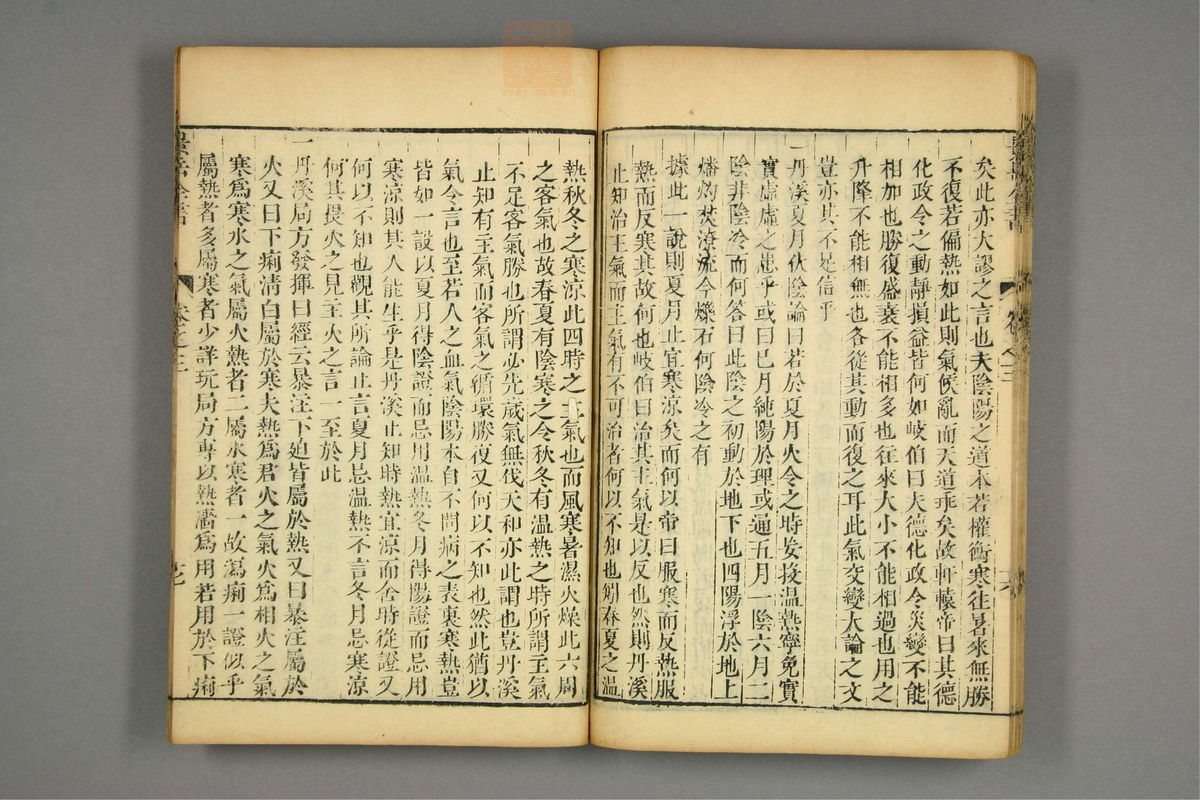 矣此亦大謬之言也夫陰陽之道本若權衡寒往暑來無勝
不復若偏熱如此則氣候亂而天道乖矣故軒轅帝曰其德
化政令之動靜損益皆何如岐伯曰夫德化政令災變不能
相加也勝復盛衰不能相多也往來大小不能相過也用之
升降不能相無也各從其動而復之耳此氣交變大論之文
豈亦其不足信乎
一丹溪夏月伏陰論曰若於夏月火令之時妄投温熱寧免實
實虛虛之患乎或曰巳月純陽於理或通五月一陰六月二
陰非陰冷而何答曰此陰之初動於地下也四陽浮於地上
燔灼焚燎流今爍石何陰冷之有
據此一說則夏月止宜寒涼矣而何以帝曰服寒而反熱服
熱而反寒其故何也岐伯曰治其王氣是以反也然則丹溪
止知治王氣而王氣有不可治者何以不知也矧春夏之温
熱秋冬之寒涼此四時之主氣也而風寒暑濕火燥此六周
之客氣也故春夏有陰寒之令秋冬有温熱之時所謂主氣
不足客氣勝也所謂必先歲氣無伐天和亦此謂也豈丹溪
止知有主氣而客氣之循環勝復又何以不知也然此猶以
氣令言也至若人之血氣陰陽本自不同病之表裏寒熱豈
皆如一設以夏月得陰證而忌用温熱冬月得陽證而忌用
寒涼則其人能生乎是丹溪止知時熱宜涼而舍時從證又
何以不知也觀其所論止言夏月忌温熱不言冬月忌寒涼
何其畏火之見主火之言一至於此
一丹溪局方發揮曰經云暴注下迫皆屬於熱又曰暴注屬於
火又曰下痢清白屬於寒夫熱爲君火之氣火爲相火之氣
寒爲寒水之氣屬火熱者二屬水寒者一故瀉痢一證似乎
屬熱者多屬寒者少詳玩局方專以熱濇爲用若用於下痢
景岳全書
卷之三